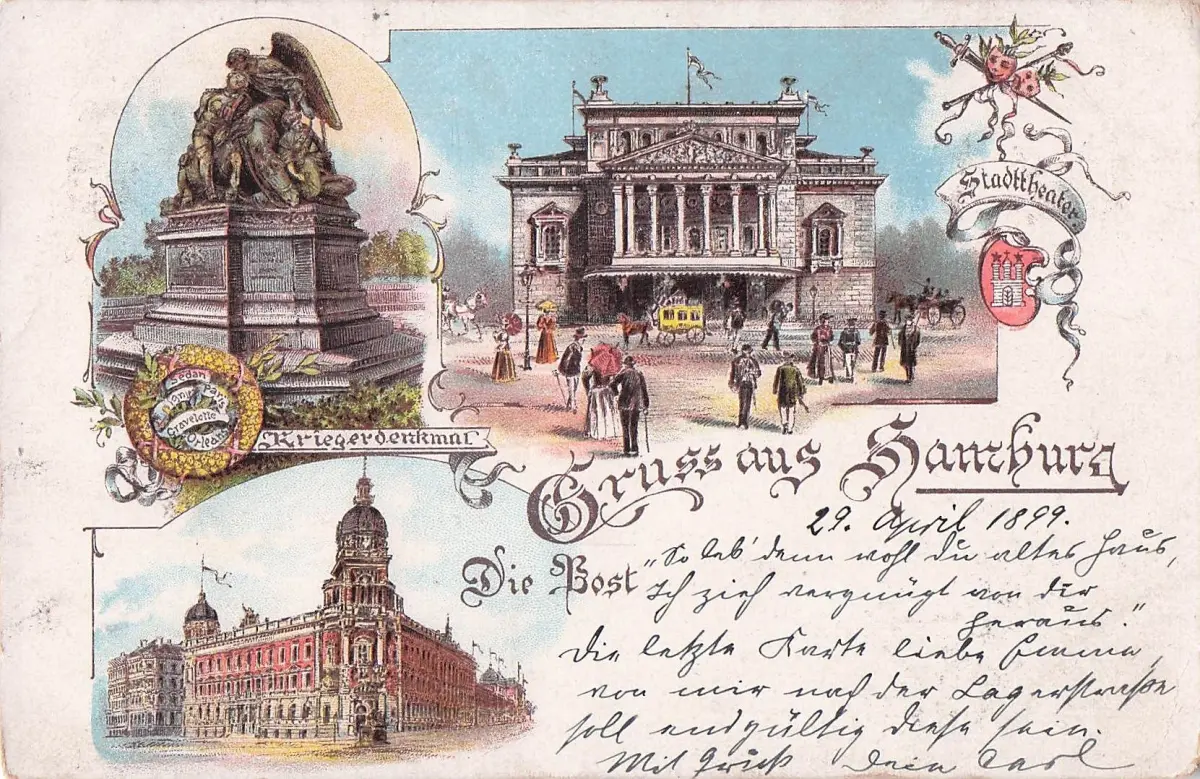 Stadttheater.
Sedan
Gravelotte
Orleans
Kriegerdenkmal
Gruss aus Hamburg
Die Post
29. April 1899.
„So leb' denn wohl du altes Haus,
Ich zieh vergnügt von dir
heraus."
Die letzte Karte liebe Emma,
von mir nach der Lagerstraße
soll endgültig diese sein.
Mit Gruß Dein Carl